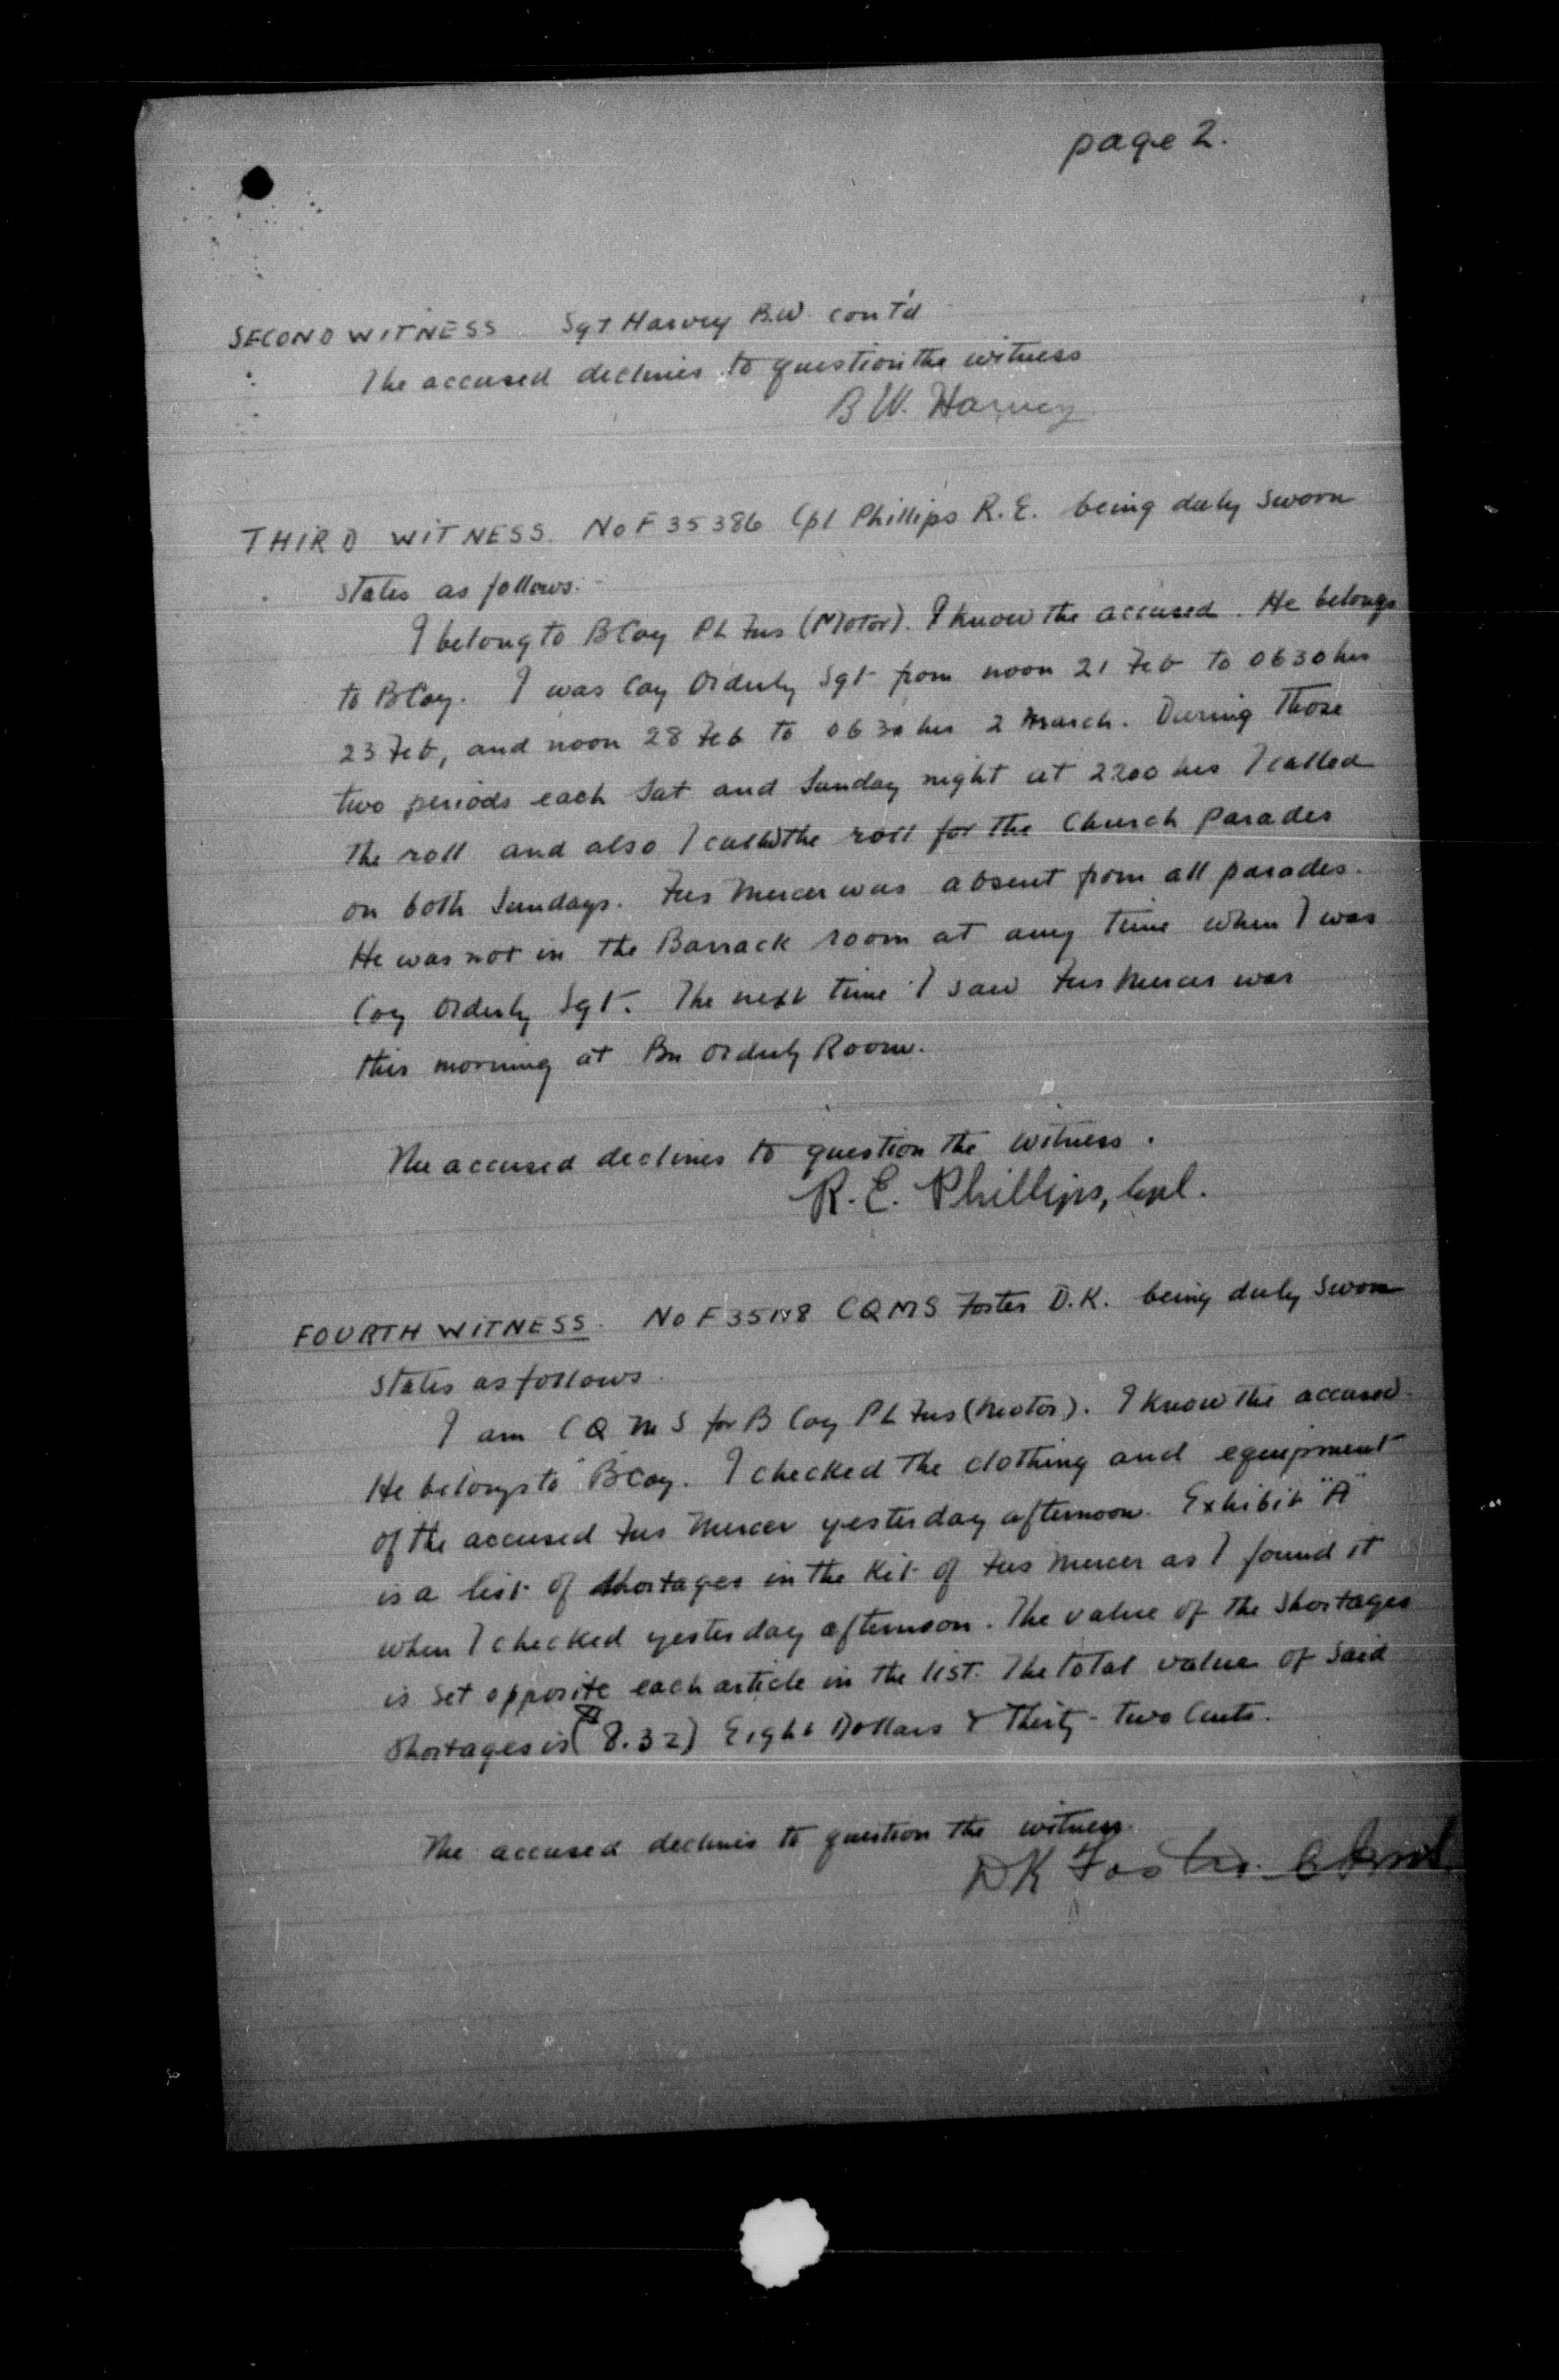 page 2.
SECOND WITNESS Sgt Harvey B.W. cont'd
The accused declines to question the witness
B W. Harvey
THIRD WITNESS. No F 35386 Cpl Phillips R.E. being duly sworn
states as follows:-
I belong to B Coy PL Fus (Motor). I know the accused. He belongs
to B Coy. I was Coy Orderly Sgt from noon 21 Feb to 0630 hrs
23 Feb, and noon 28 Feb to 0630 hrs 2 March. During those
two periods each Sat and Sunday night at 2200 hrs I called
the roll and also I called the roll for the Church parades
on both Sundays. Fus Mercer was absent from all parades.
He was not in the Barrack room at any time when I was
Coy Orderly Sgt. The next time I saw Fus Mercer was
this morning at Bn Orderly Room.
The accused declines to question the witness.
R.E. Phillips, Cpl.
FOURTH WITNESS. No CQMS Foster D.K. being duly sworn
states as follows.
I am CQMS for B Coy PL Fus (Motor). I know the accused.
He belongs to B Coy. I checked the clothing and equipment
of the accused Fus Mercer yesterday afternoon. Exhibit "A"
is a list of shortages in the kit of Fus Mercer as I found it
when I checked yesterday afternoon. The value of the shortages
is set opposite each article in the list. The total value of said
shortages is ($8.32) Eight Dollars & Thirty-two Cents.
The accused declines to question the witness.
DK Foster